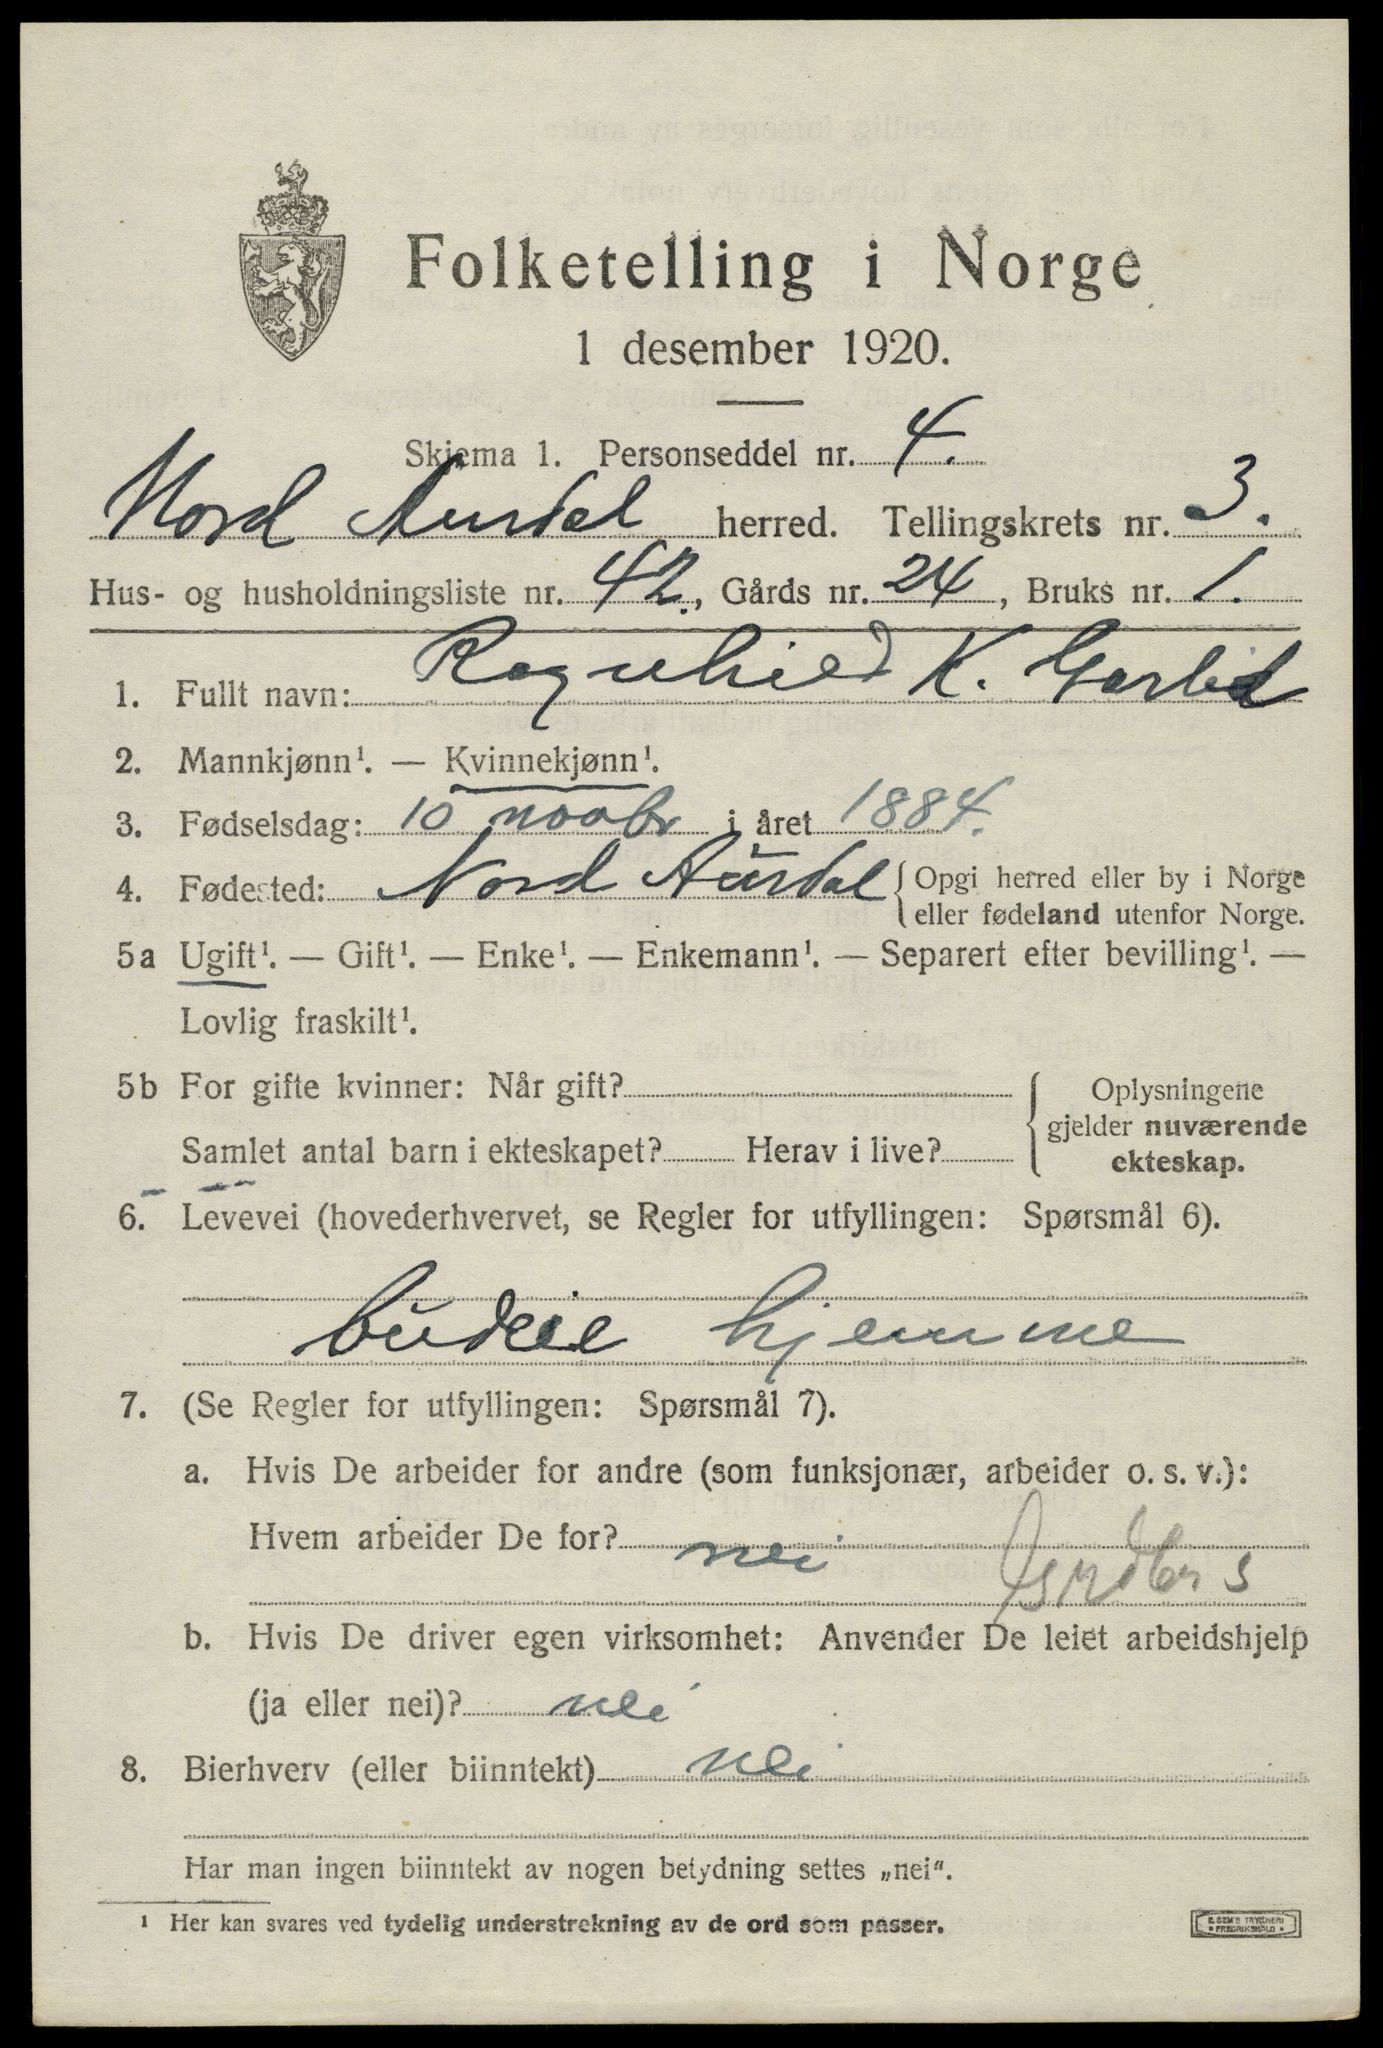 Folketelling i Norge
1 desember 1920.
Skjema 1. Personseddel nr. 4.
Nord Aurdal herred. Tellingskrets nr. 3.
Hus- og husholdningsliste nr. 42., Gårds nr. 24, Bruks nr. 1.
1. Fullt navn: Ragnhild K. Garlid
2. Mannkjønn¹. — Kvinnekjønn¹.
3. Fødselsdag: 10 novbr i året 1884.
4. Fødested: Nord Aurdal { Opgi herred eller by i Norge
eller fødeland utenfor Norge.
5a Ugift¹. — Gift¹. — Enke¹. — Enkemann¹. — Separert efter bevilling¹. —
Lovlig fraskilt¹.
5b For gifte kvinner: Når gift? { Oplysningene
gjelder nuværende
Samlet antal barn i ekteskapet? Herav i live? ekteskap.
6. Levevei (hovederhvervet, se Regler for utfyllingen: Spørsmål 6).
budeie hjemme
7. (Se Regler for utfyllingen: Spørsmål 7).
a. Hvis De arbeider for andre (som funksjonær, arbeider o. s. v.):
Hvem arbeider De for? nei
b. Hvis De driver egen virksomhet: Anvender De leiet arbeidshjelp
(ja eller nei)? nei
8. Bierhverv (eller biinntekt) nei
Har man ingen biinntekt av nogen betydning settes „nei“.
¹ Her kan svares ved tydelig understrekning av de ord som passer.
E. SEM'S TRYKKERI
• FREDRIKSHALD •